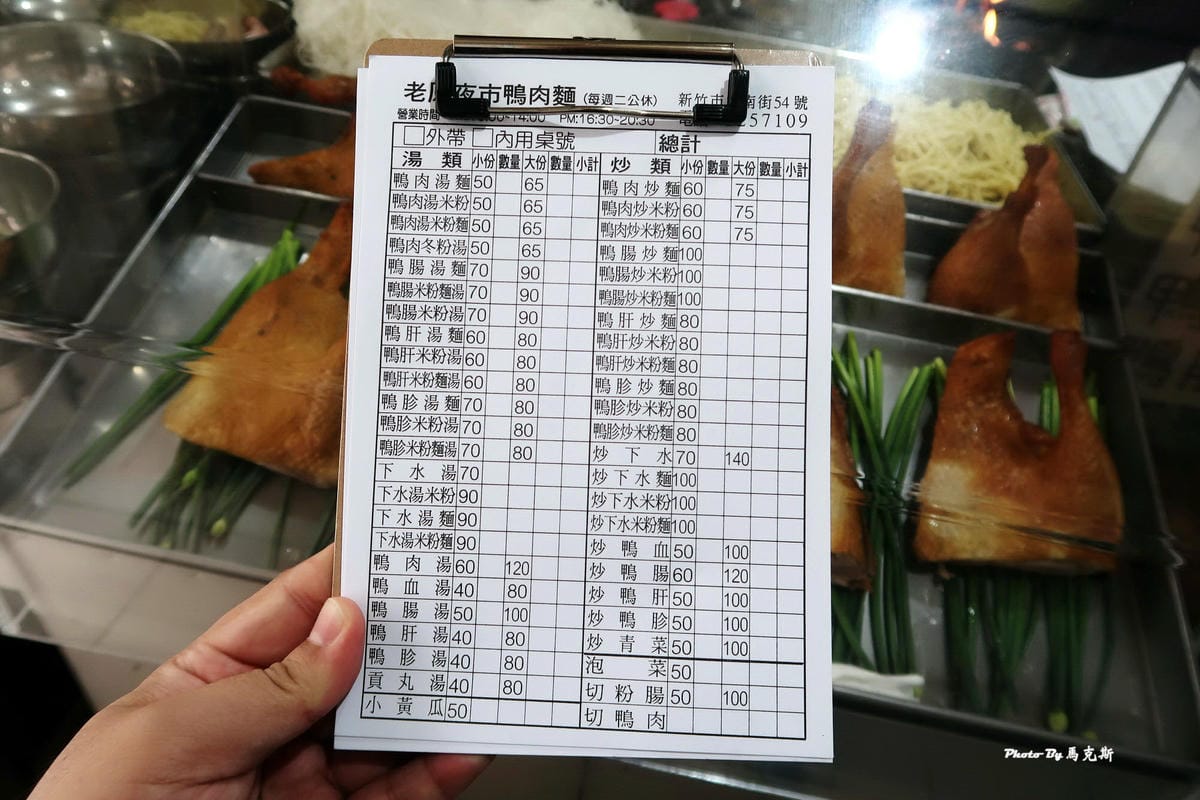 老 夜市鴨肉麵 (每週二公休) 新竹市 南街54號
營業時間 00~14:00 PM:16:30~20:30 257109
外帶 內用桌號 總計
湯類 小份 數量 大份 數量 小計 炒類 小份 數量 大份 數量 小計
鴨肉湯麵 50 65 鴨肉炒麵 60 75
鴨肉湯米粉 50 65 鴨肉炒米粉 60 75
鴨肉湯米粉麵 50 65 鴨肉炒米粉麵 60 75
鴨肉冬粉湯 50 65 鴨腸炒麵 100
鴨腸湯麵 70 90 鴨腸炒米粉 100
鴨腸米粉麵湯 70 90 鴨腸炒米粉麵 100
鴨腸米粉湯 70 90 鴨肝炒麵 80
鴨肝湯麵 60 80 鴨肝炒米粉 80
鴨肝米粉湯 60 80 鴨肝炒米粉麵 80
鴨肝米粉麵湯 60 80 鴨胗炒麵 80
鴨胗湯麵 70 80 鴨胗炒米粉 80
鴨胗米粉湯 70 80 鴨胗炒米粉麵 80
鴨胗米粉麵湯 70 80 炒下水 70 140
下水湯 70 炒下水麵 100
下水湯米粉 90 炒下水米粉 100
下水湯麵 90 炒下水米粉麵 100
下水湯米粉麵 90 炒鴨血 50 100
鴨肉湯 60 120 炒鴨腸 60 120
鴨血湯 40 80 炒鴨肝 50 100
鴨腸湯 50 100 炒鴨胗 50 100
鴨肝湯 40 80 炒青菜 50 100
鴨胗湯 40 80 泡菜 50
貢丸湯 40 80 切粉腸 50 100
小黃瓜 50 切鴨肉
Photo By 馬克斯